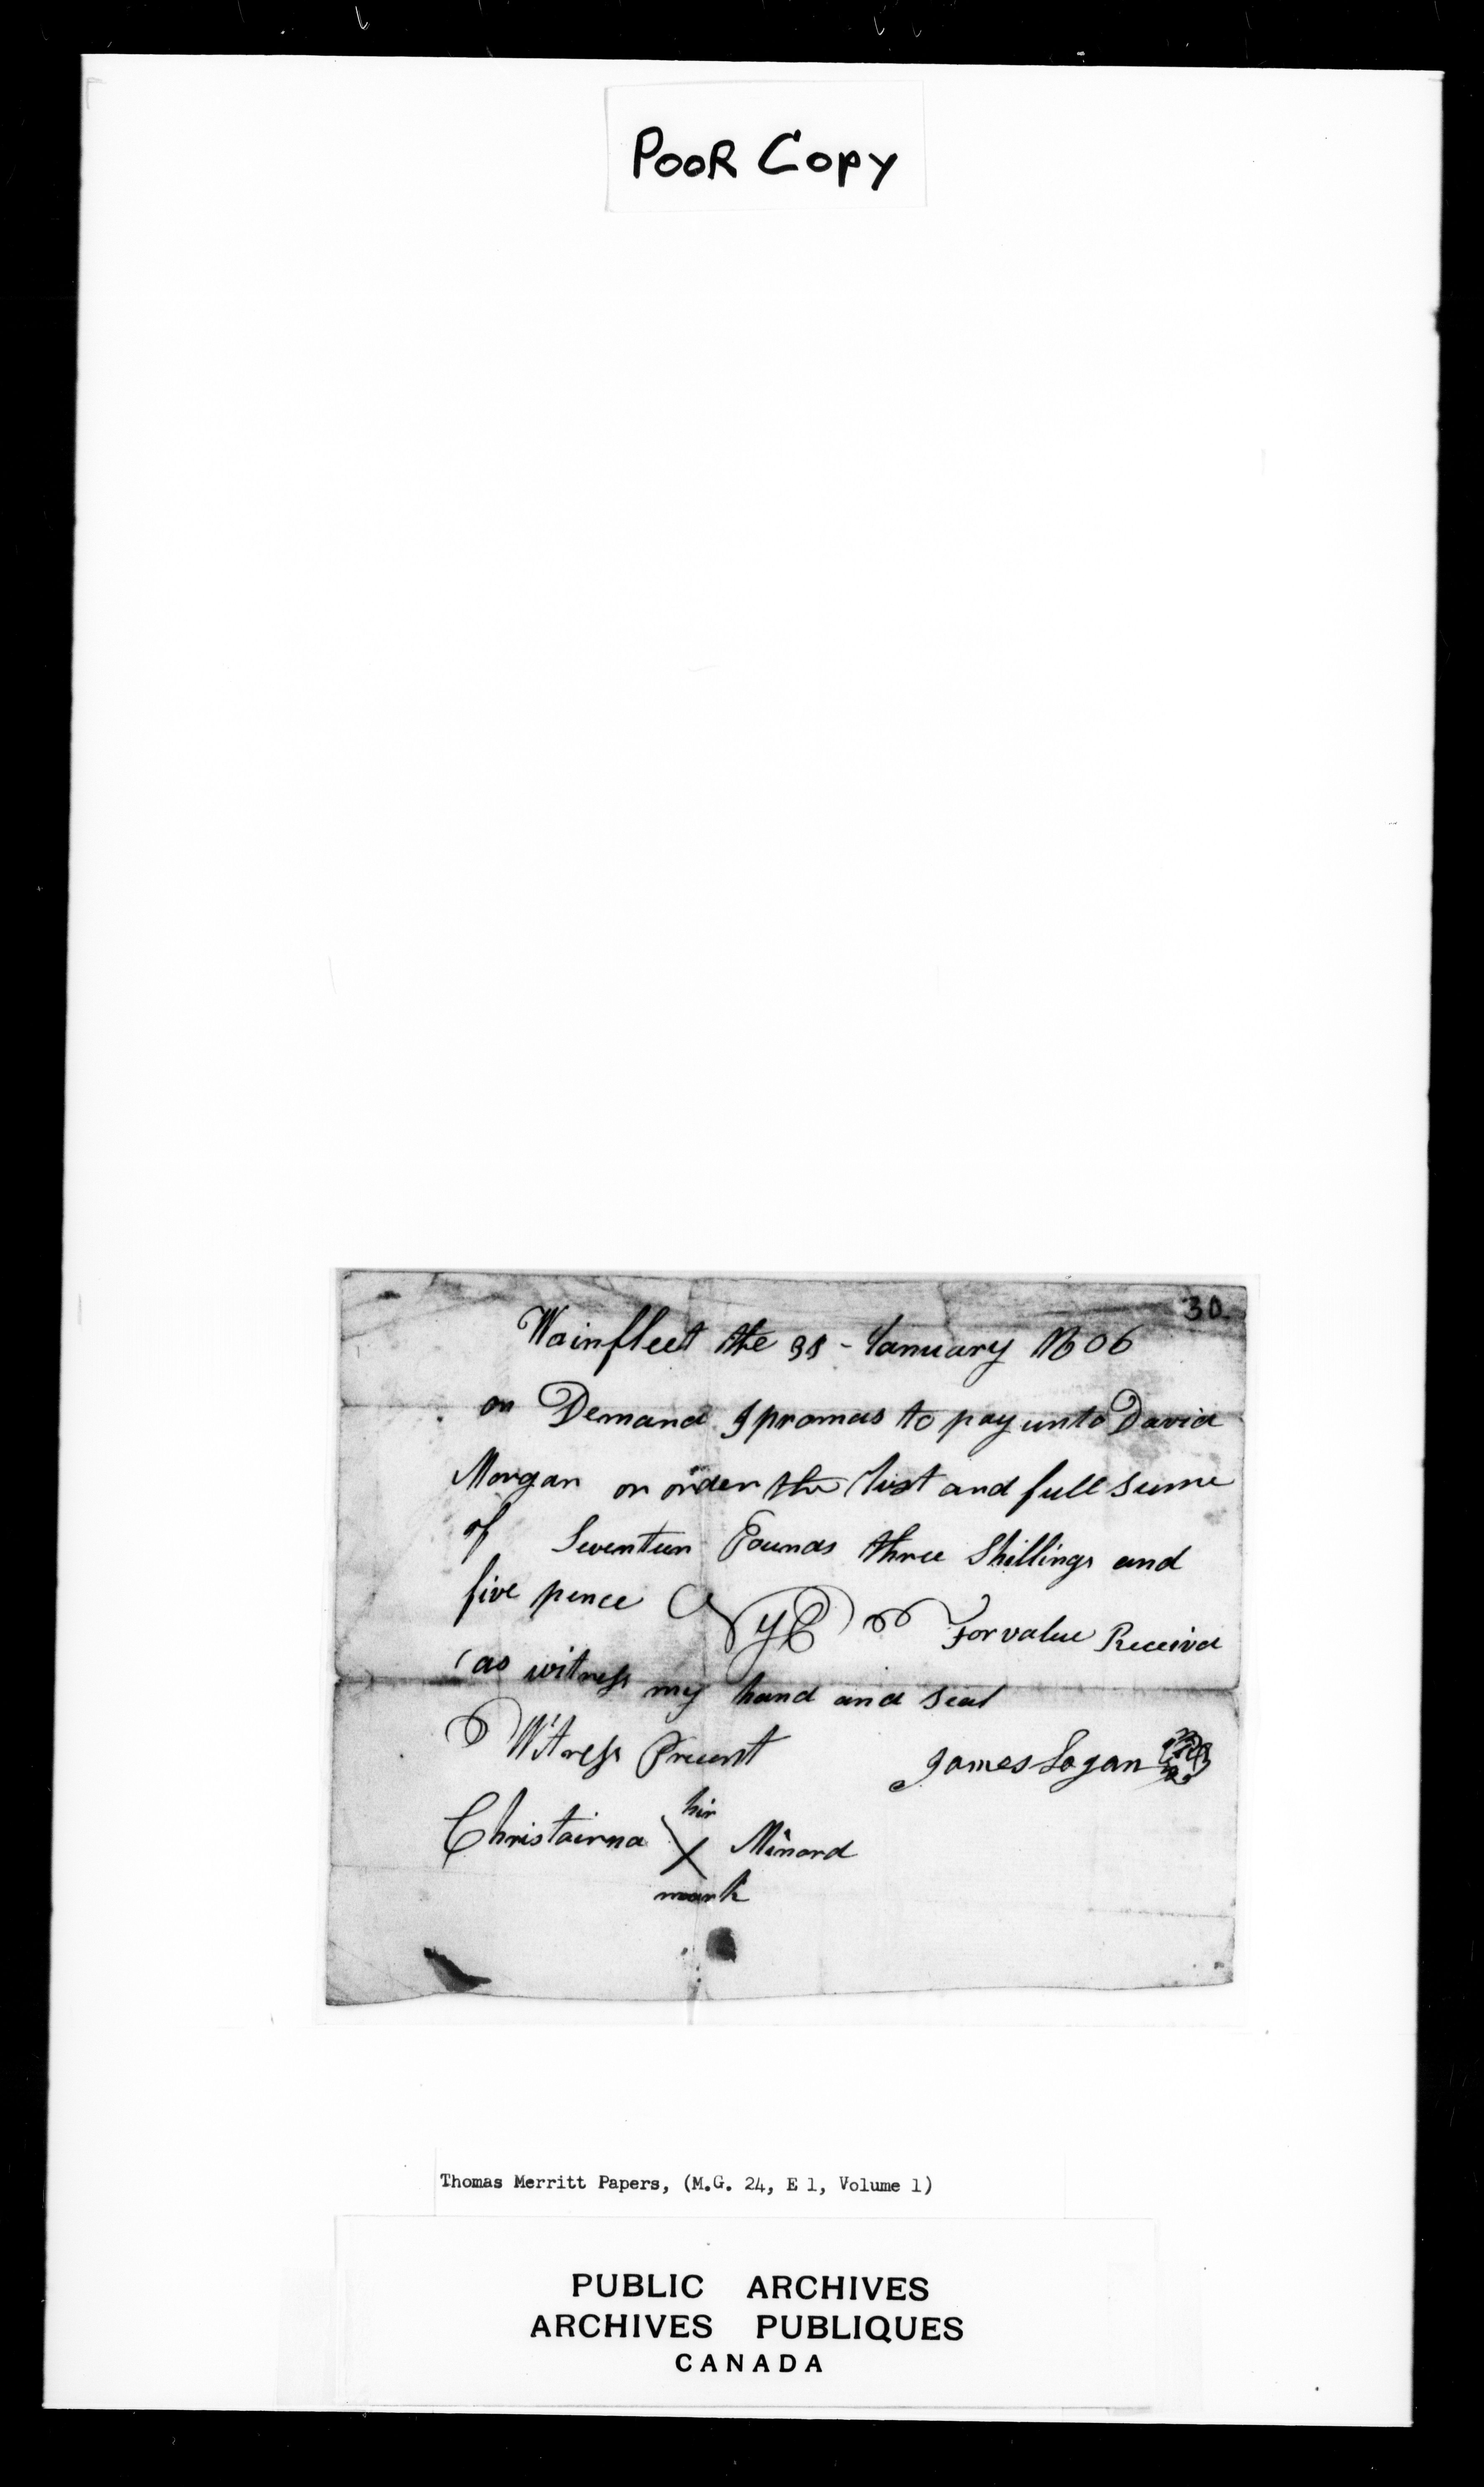 POOR COPY
30
Wainfleet the 31 - January 1806
on Demand I promas to pay unto David
Morgan or order the Just and full sume
of Seventeen Pounds three Shillings and
five pence NYC For value Receivd
as witness my hand and seal
Witness Present James Logan
Christairna his X Minard
mark
Thomas Merritt Papers, (M.G. 24, E 1, Volume 1)
PUBLIC ARCHIVES
ARCHIVES PUBLIQUES
CANADA